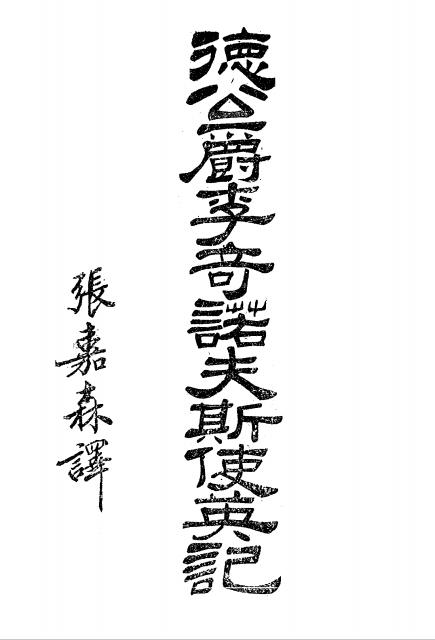 德公爵李奇諾夫斯使英記
張嘉森譯